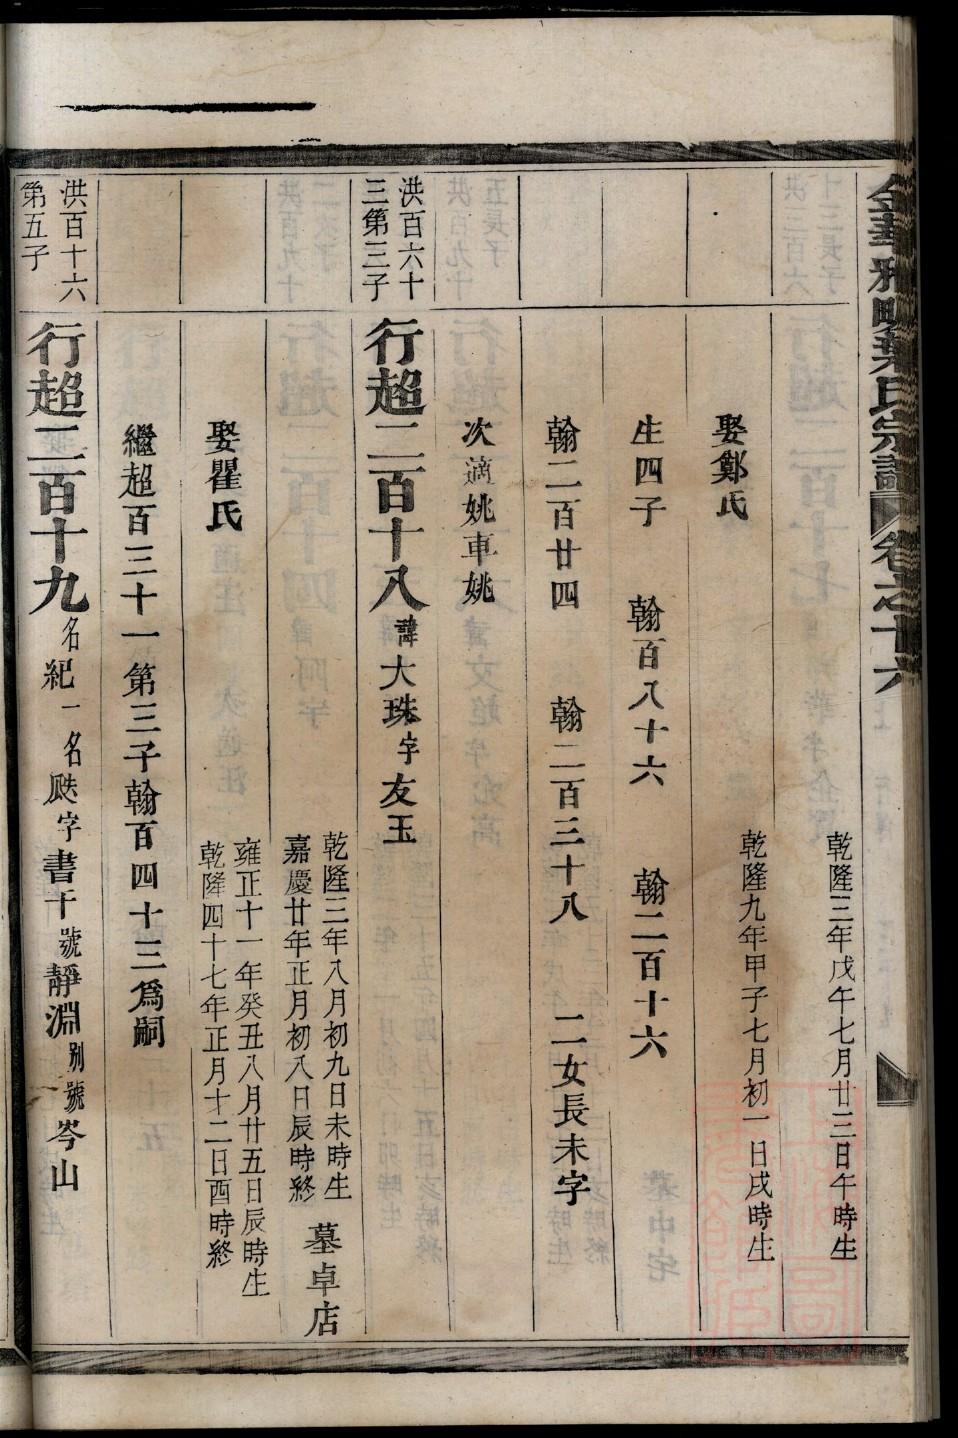 金華雅畈葉氏宗譜 卷之十六
乾隆三年戊午七月廿三日午時生
娶鄭氏
乾隆九年甲子七月初一日戌時生
生四子 翰百八十六 翰二百十六
翰二百廿四 翰二百三十八 二女長未字
次適姚車姚
洪百六十三第三子
行超二百十八 諱大珠字友玉
乾隆三年八月初九日未時生
嘉慶廿年正月初八日辰時終 墓卓店
娶瞿氏
雍正十一年癸丑八月廿五日辰時生
乾隆四十七年正月十二日酉時終
繼超百三十一第三子翰百四十三為嗣
洪百十六第五子
行超二百十九 名紀一名瓞字書干號靜淵別號岑山